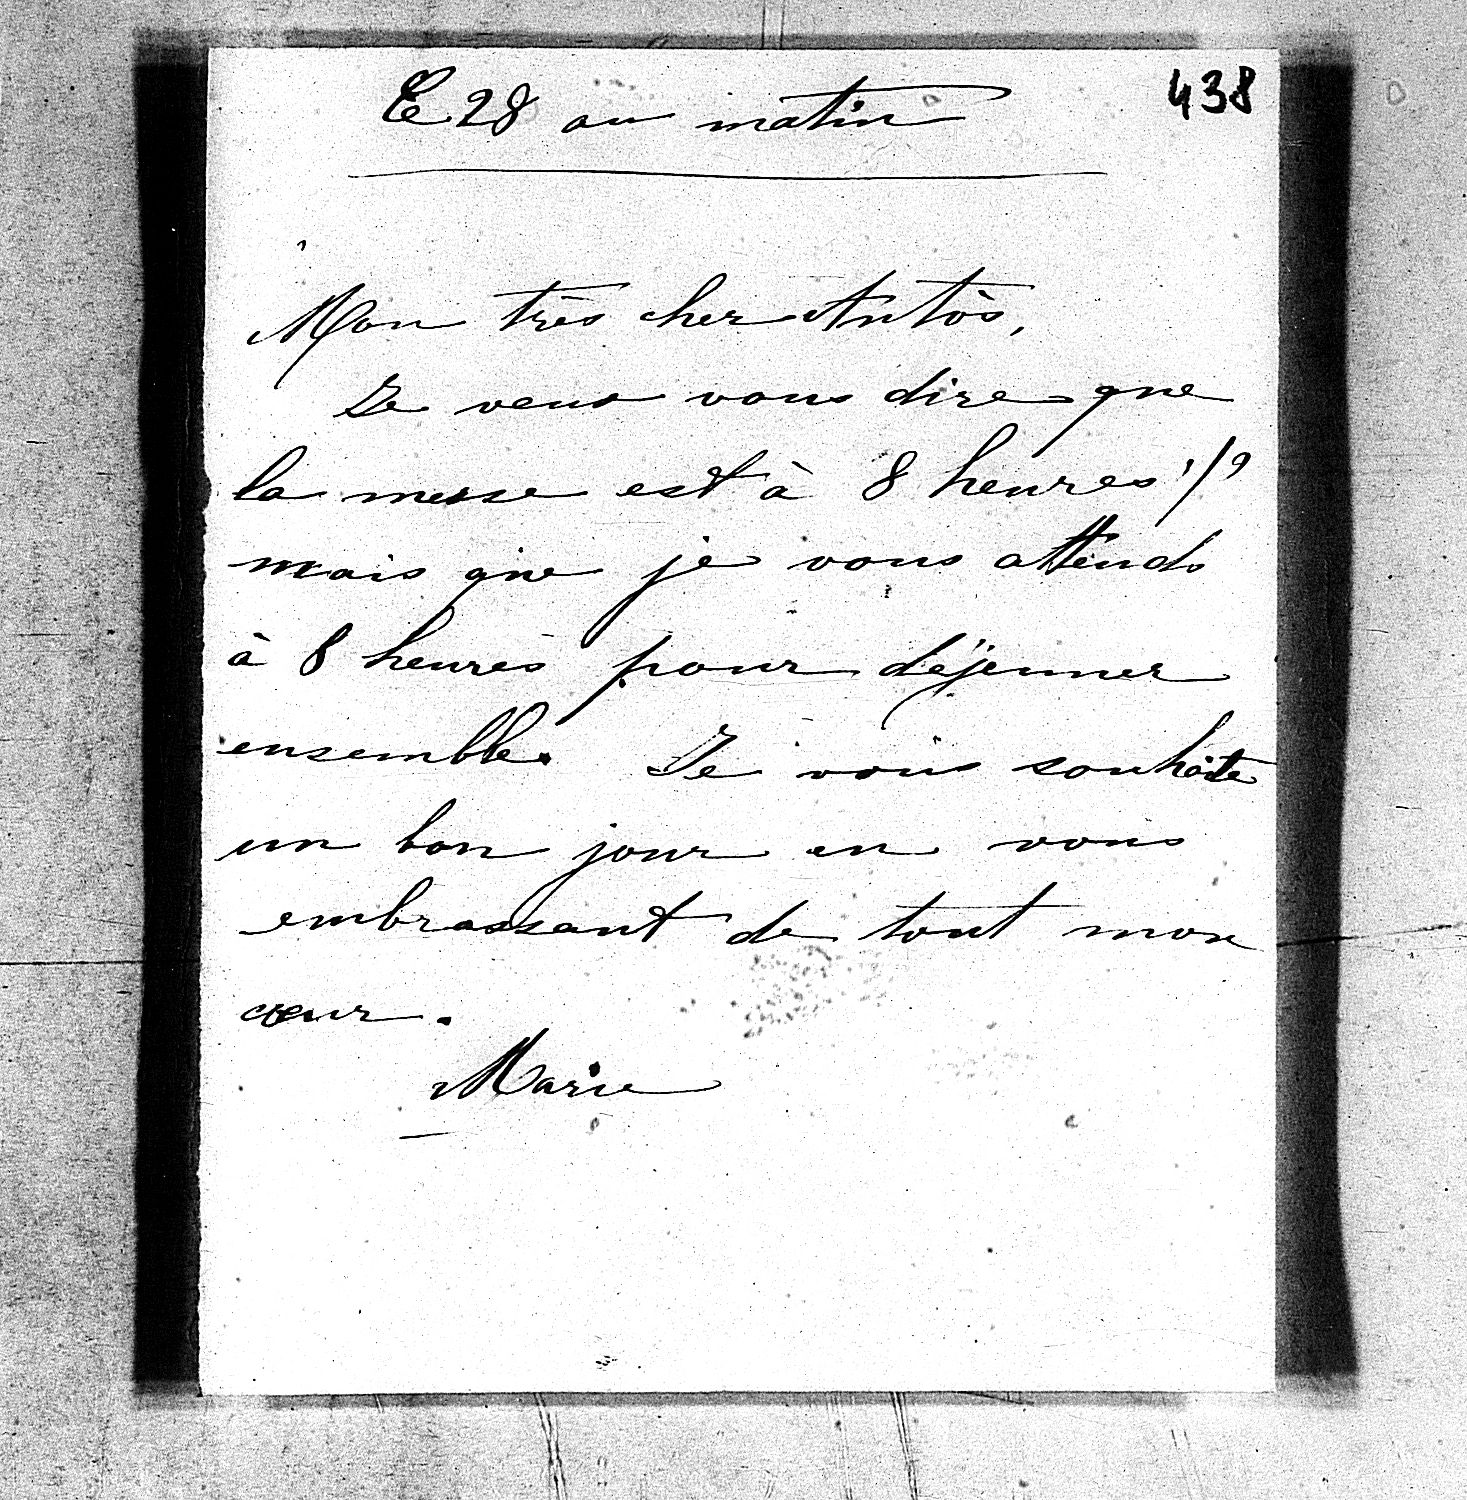 Le 28 au matin
438
Mon très cher Antòs,
Je veus vous dire que
la messe est à 8 heures 1/2
mais que je vous attends
à 8 heures pour déjeuner
ensemble. Je vous souhaite
un bon jour en vous
embrassant de tout mon
cœur.
Marie